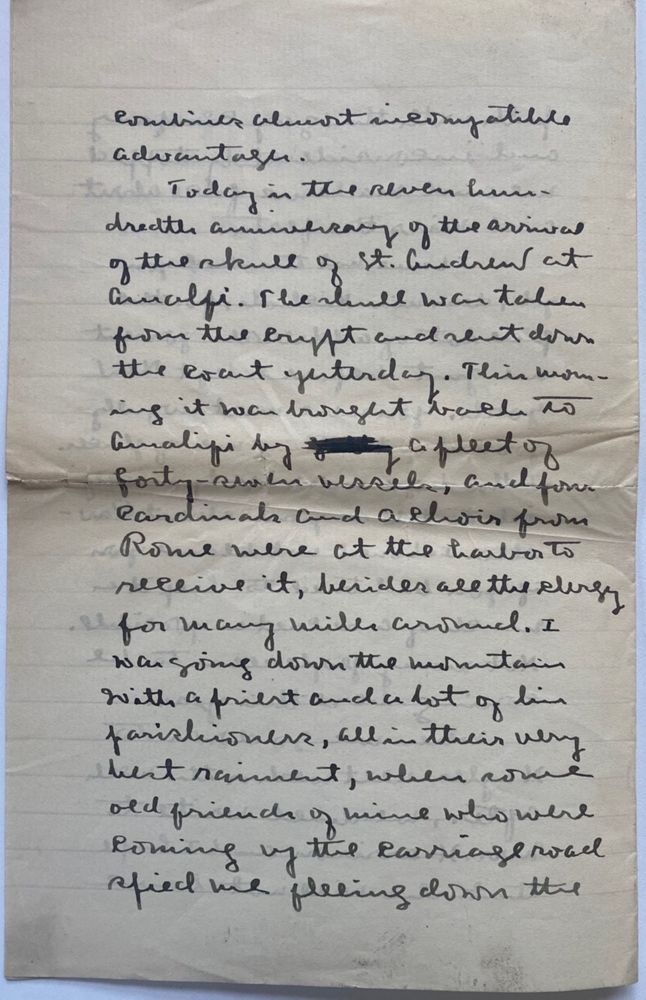 combines almost incompatible
advantages.
Today is the seven hun-
dredth anniversary of the arrival
of the skull of St. Andrew at
Amalfi. The skull was taken
from the crypt and sent down
the coast yesterday. This morn-
ing it was brought back to
Amalfi by a fleet of
forty-seven vessels, and four
cardinals and a choir from
Rome were at the harbor to
receive it, besides all the clergy
for many miles around. I
was going down the mountain
with a priest and a lot of his
parishioners, all in their very
best raiment, when some
old friends of mine who were
coming up the carriage road
spied me fleeing down the